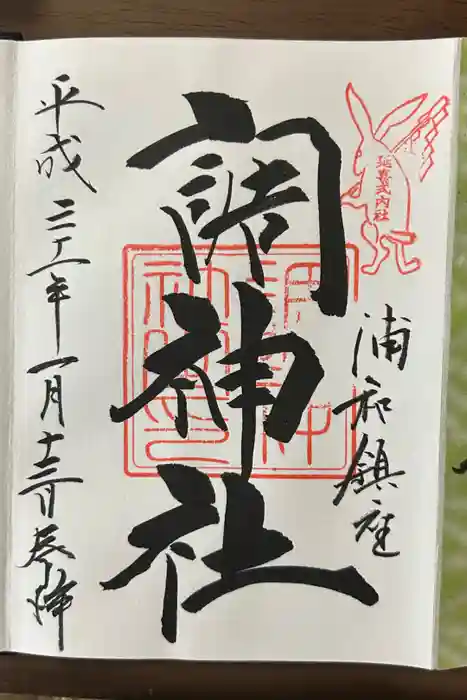 延喜式内社
浦和鎮座
調神社
平成
年一月十三日奉拝